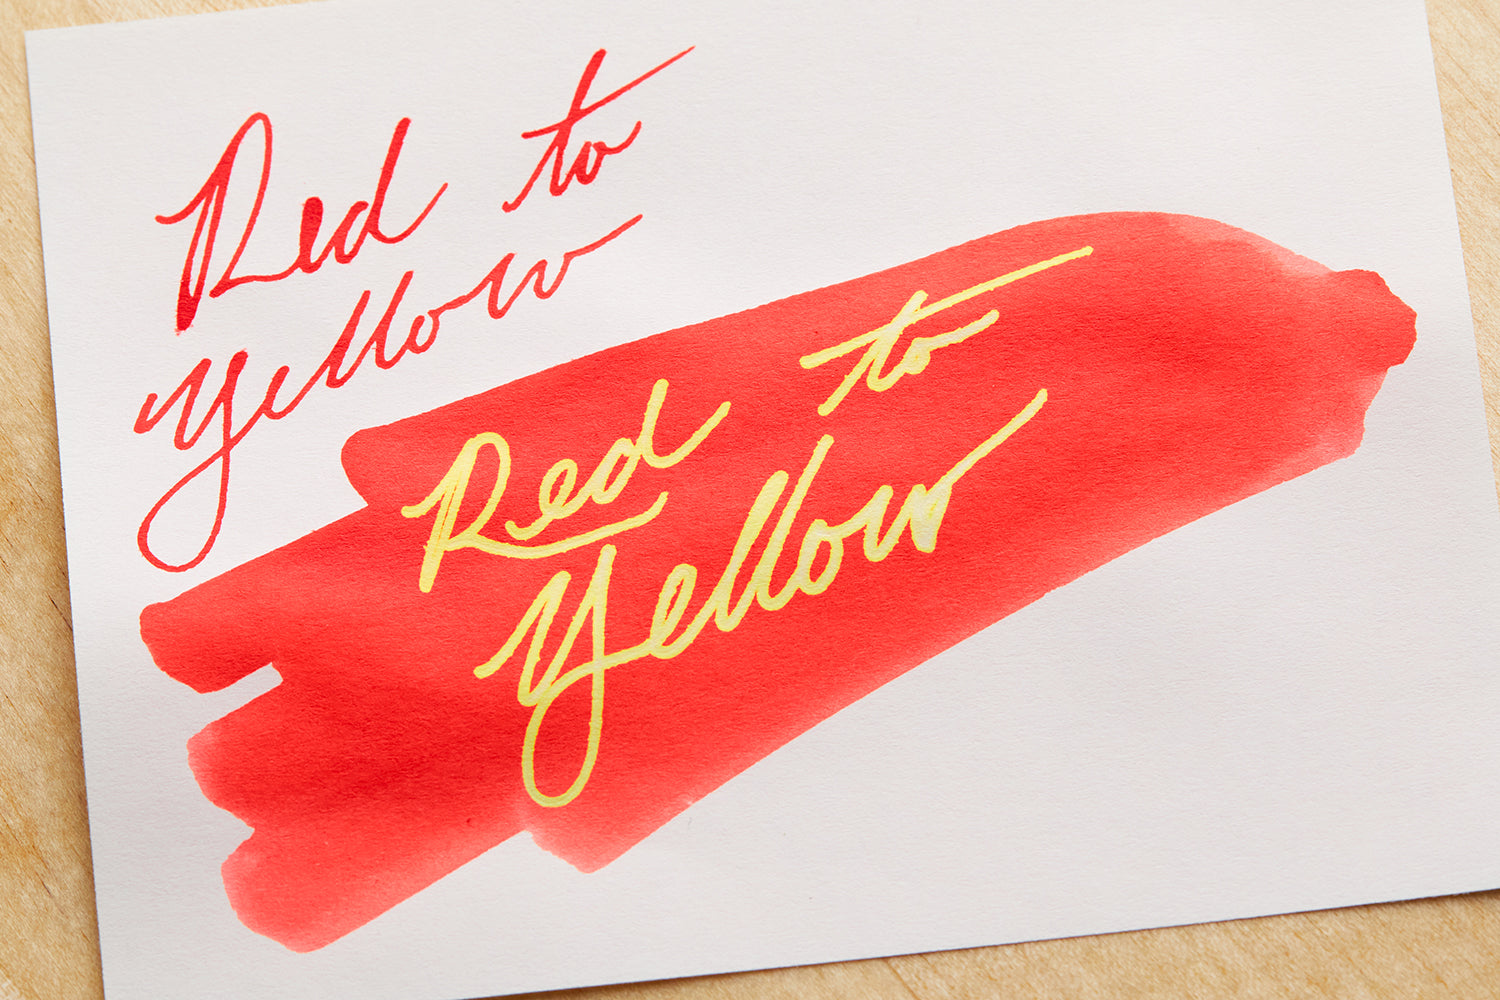 Red to
Yellow
Red to
Yellow